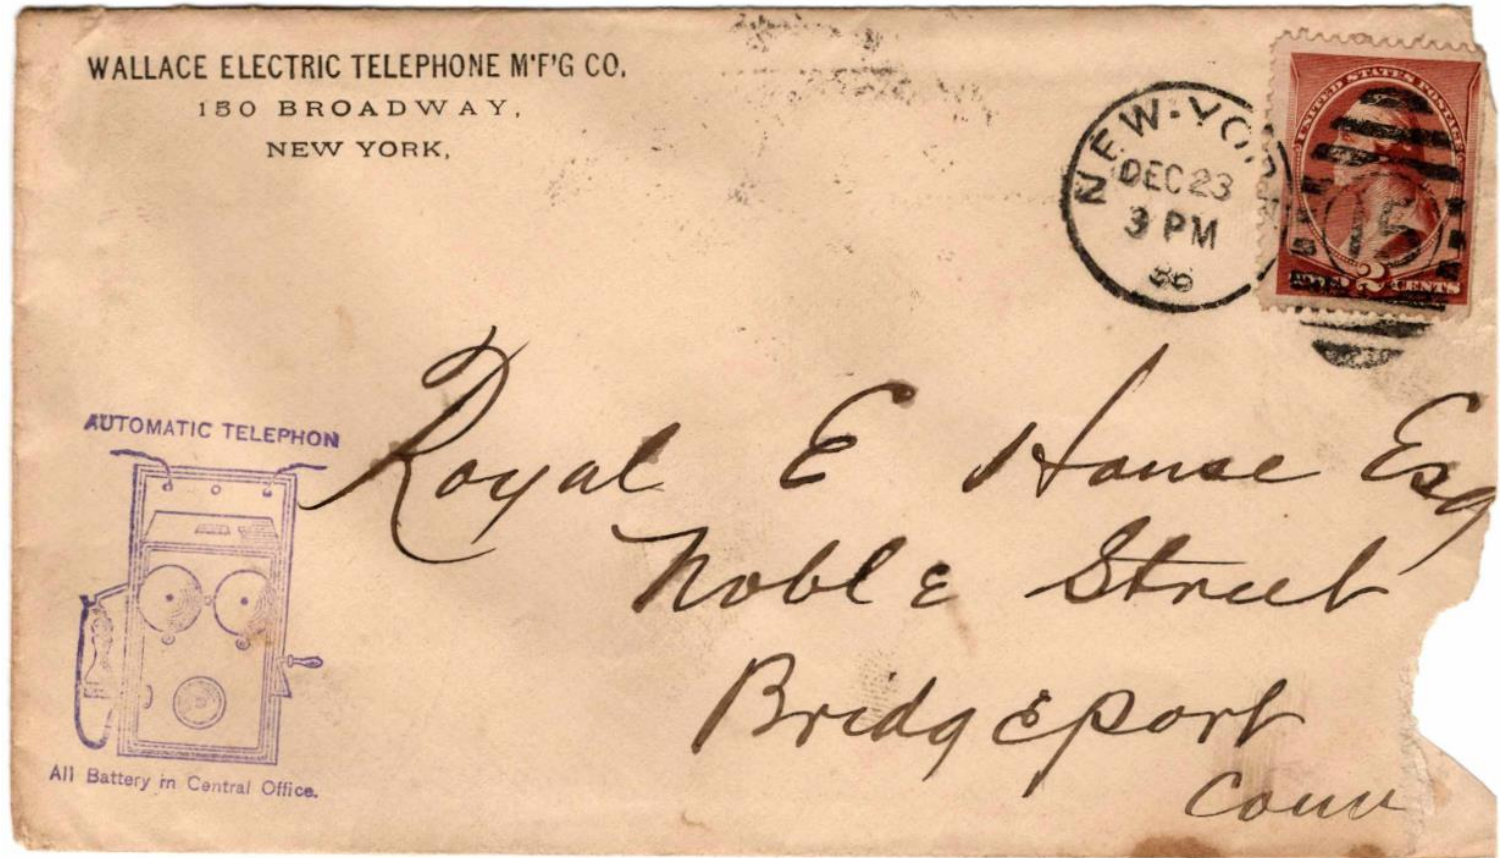 WALLACE ELECTRIC TELEPHONE M'F'G CO.
150 BROADWAY,
NEW YORK,
NEW-YORK
DEC 23
3 PM
86
UNITED STATES POSTAGE
15
2
TWO CENTS
AUTOMATIC TELEPHON
All Battery in Central Office.
Royal E House Esq
Noble Street
Bridgeport
Conn